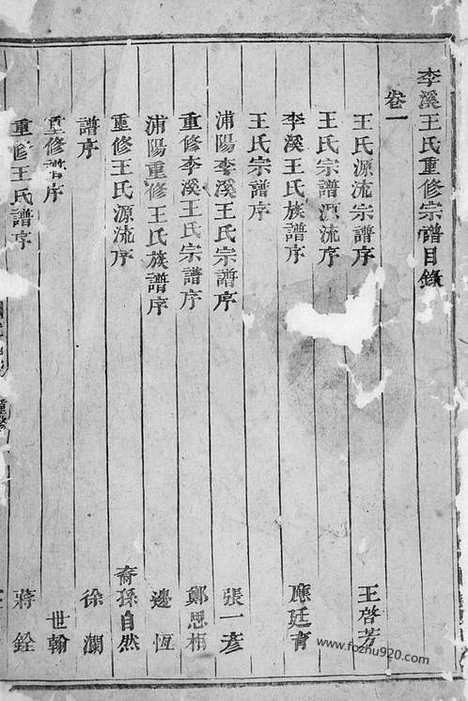 李溪王氏重修宗譜目錄
卷一
王氏源流宗譜序 王啓芳
王氏宗譜源流序
李溪王氏族譜序 應廷育
王氏宗譜序
浦陽李溪王氏宗譜序 張一彥
重修李溪王氏宗譜序 鄭思栢
浦陽重修王氏族譜序 邊恆
重修王氏源流序 裔孫自然
譜序 徐瀾
重修譜序 世翰
重修王氏譜序 蔣銓
www.fozhu920.com